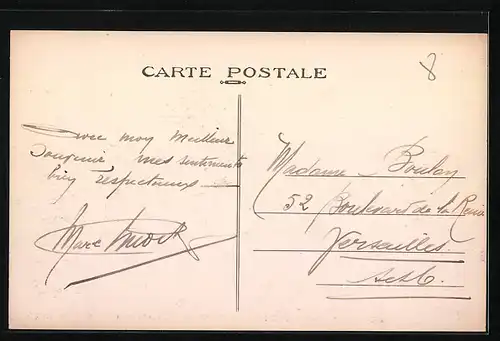 CARTE POSTALE
8
Avec moy meilleur
Souvenir mes sentiments
bien respectueux
Marc
Madame Boulay
52 Boulevard de la Reine
Versailles